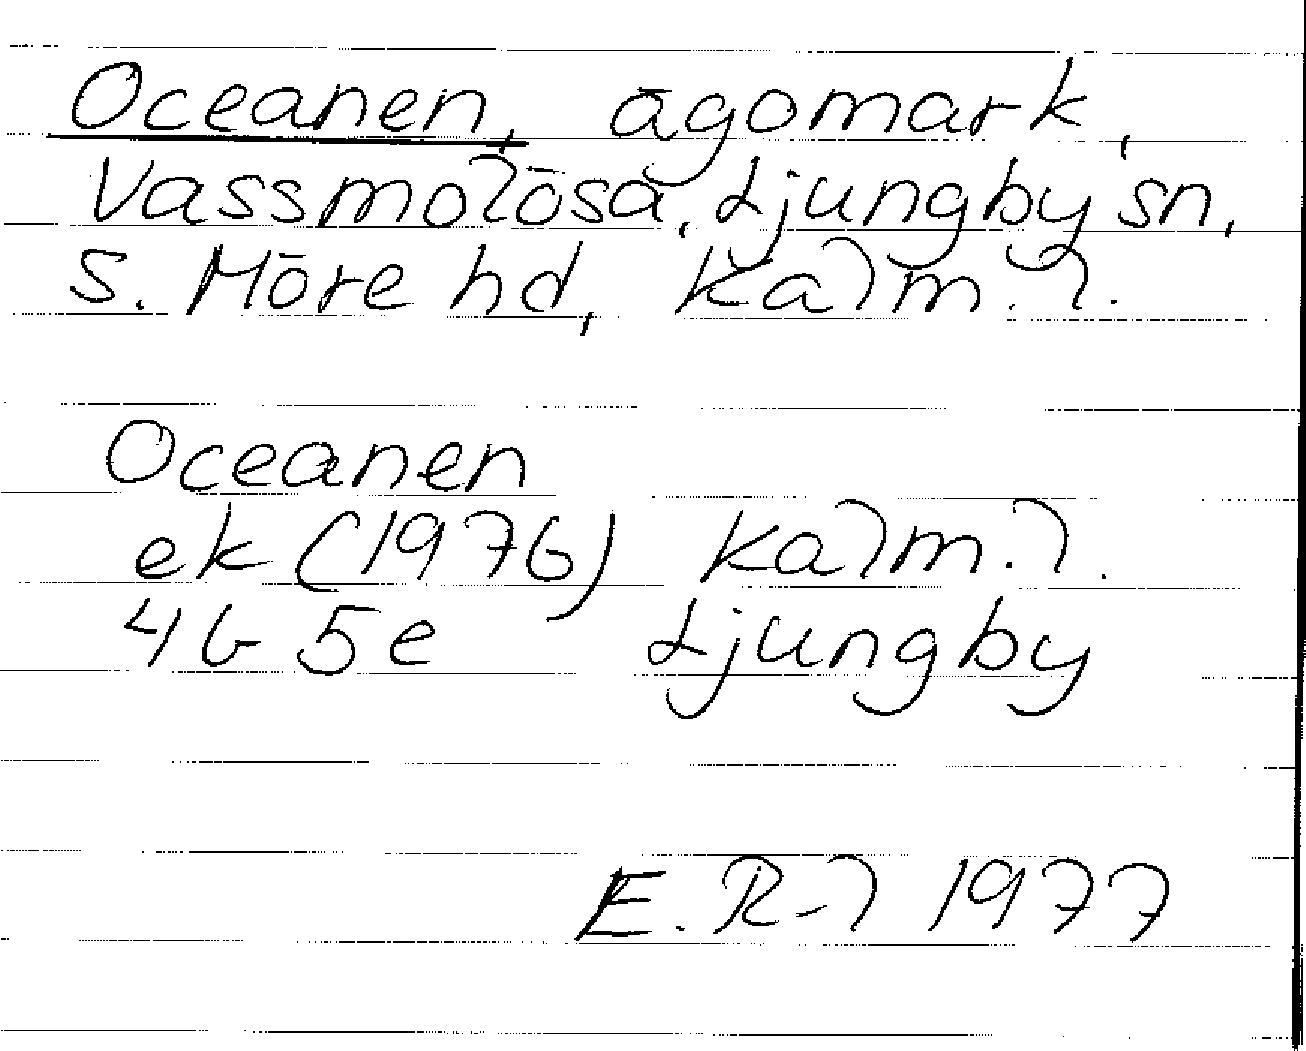 Oceanen, ägomark,
Vassmolösa, Ljungby sn,
S. Möre hd, Kalm. l.
Oceanen
ek (1976) Kalm. l.
4G 5e Ljungby
E. R-l 1977